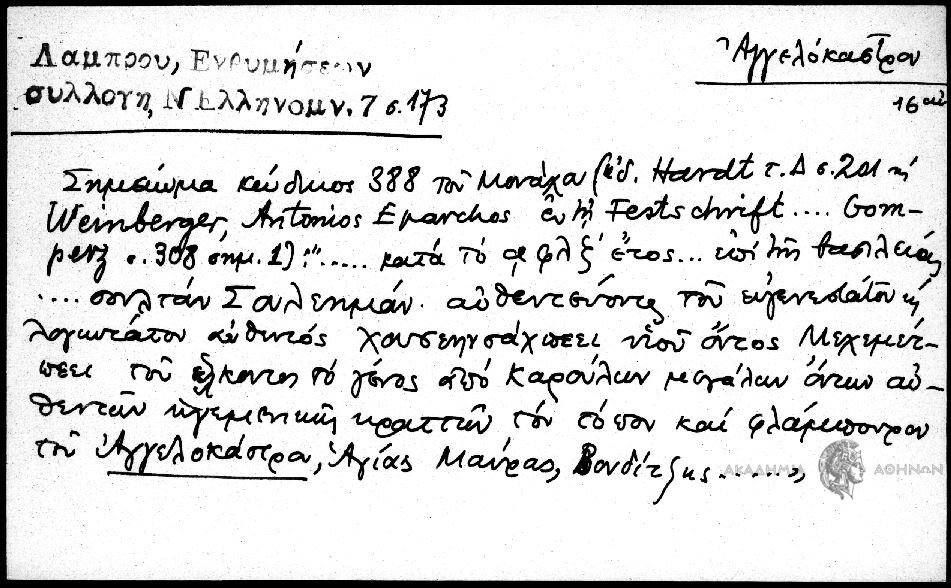 Λαμπρου, Ενθυμήσεων
συλλογη, Ν Ελληνομν. 7 σ. 173
Ἀγγελόκαστρον
16 αἰ
Σημείωμα κώδικος 388 τοῦ Μονάχου (ἐκδ. Hardt τ. Δ σ. 201 καὶ
Weinberger, Antonios Eparchos ἐν τῇ Festschrift .... Gom-
perz σ. 308 σημ. 1) : "..... κατὰ τὸ αφλξ' ἔτος... ἐπὶ τῆς βασιλείας
.... σουλτὰν Σουλεημάν. αὐθεντεύοντος τοῦ εὐγενεστάτου καὶ
λογιωτάτου αὐθεντός χουσεηνσάχπεει υἱοῦ ὄντος Μεχεμέτ-
πεει τοῦ ἕλκοντος τὸ γένος ἀπὸ Καρούλων μεγάλων ὄντων αὐ-
θεντῶν ἡγεμονικῶς κρατῶν τὸν τόπον καὶ φλάμπουρον
τοῦ Ἀγγελοκάστρου, Ἁγίας Μαύρας, Βονδίτζης ......,
ΑΚΑΔΗΜΙΑ ΑΘΗΝΩΝ